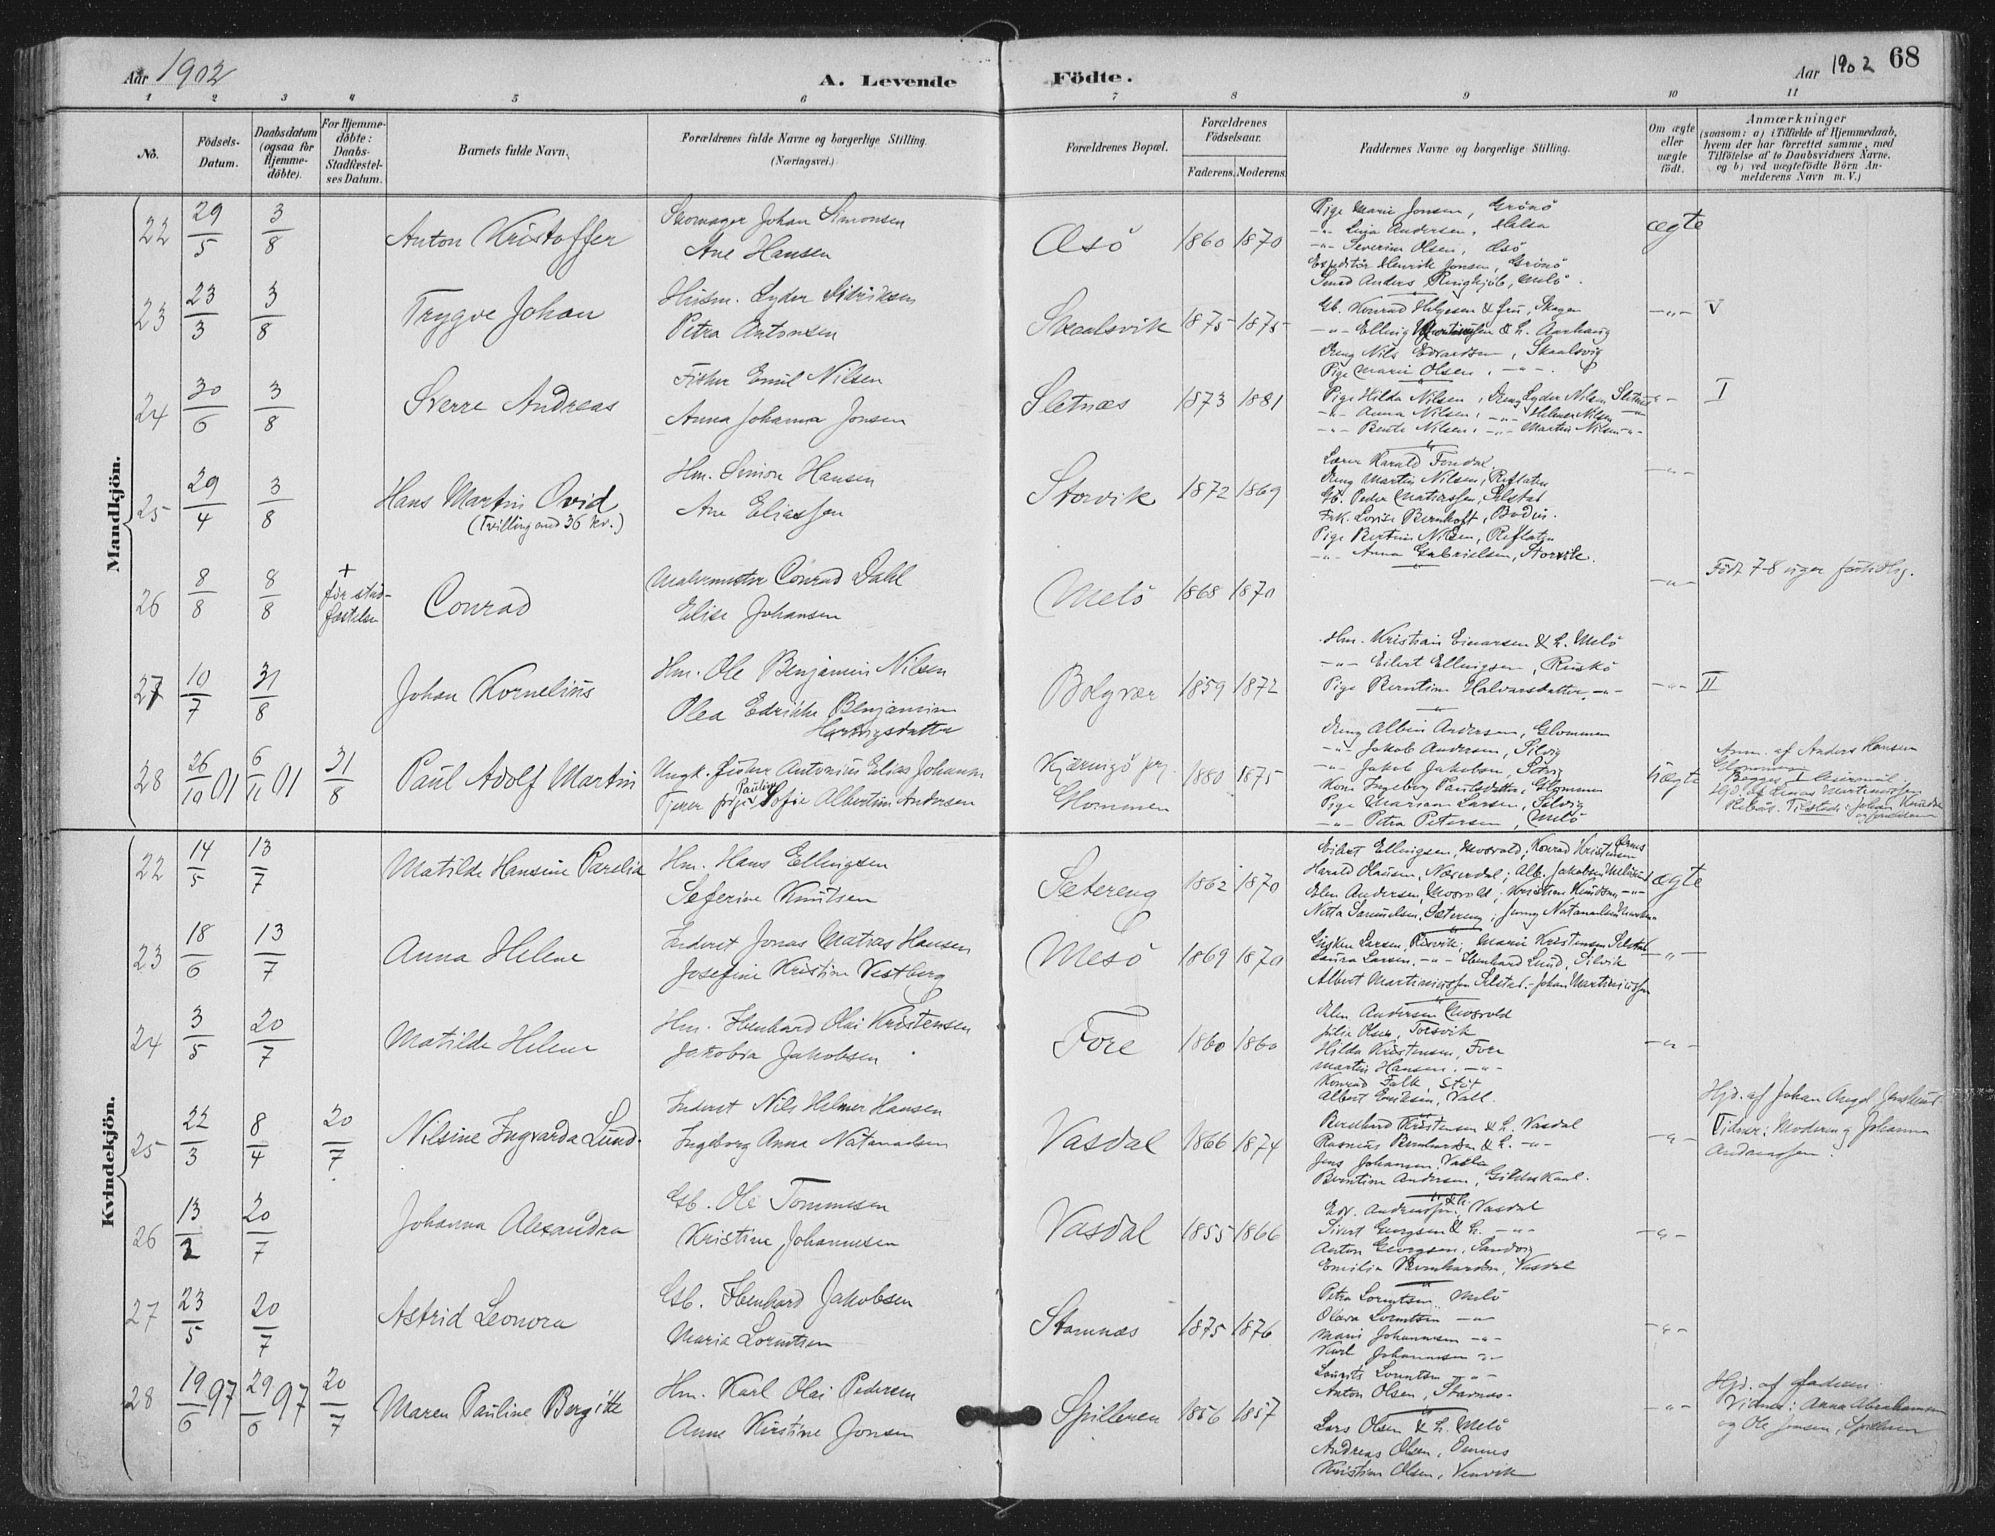 Aar 1902
A. Levende
Födte.
Aar 1902
68
1 2 3 4 5 6 7 8 9 10 11
No.
Födsels-
Datum.
Daabsdatum
(ogsaa for
Hjemme-
döbte).
For Hjemme-
döbte:
Daabs-
Stadfæstel-
ses Datum.
Barnets fulde Navn.
Forældrenes fulde Navne og borgerlige Stilling.
(Næringsvei.)
Forældrenes Bopæl.
Forældrenes
Födselsaar.
Faderens. Moderens.
Faddernes Navne og borgerlige Stilling.
Om ægte
eller
uægte
födt.
Anmærkninger
(saasom: a) i Tilfælde af Hjemmedaab,
hvem der har forrettet samme, med
Tilföielse af to Daabsvidners Navne,
og b) ved uægtefödte Börn An-
melderens Navn m. V.)
Mandkjön.
22 29/5 3/8 Anton Kristoffer
Skomager Johan Simonsen
Ane Hansen
Æsö 1860 1870
Pige Marie Jonsen, Grönö
-"- Andersen, Halsa
-"- Severine Olsen, Æsö
Expeditör Henrik Jonsen, Grönö
Smed Anders Ringkjöb, Melö
ægte
23 23/3 3/8 Trygve Johan
Husm. Lyder Didriksen
Petra Antonsen
Skaalsvik 1875 1875
Gb. Konrad Helgesen & fru, Skagen
-"- Elling Martinussen & h. Aarhaug
Dreng Nils Edvardsen, Skaalsvig
Pige Marie Olsen, -"-
-"- V
24 30/6 3/8 Sverre Andreas
Fisker Emil Nilsen
Anna Johanna Jonsen
Sletnæs 1873 1881
Pige Hilda Nilsen, Dreng Lyder Nilsen Sletnæs
-"- Anna Nilsen, -"- Helmer Nilsen -"-
-"- Bente Nilsen, -"- Martin Nilsen -"-
-"- I
25 29/4 3/8 Hans Martin Ovid
(Tvilling and 36 kv.)
Hm. Simon Hansen
Ane Eliassen
Storvik 1872 1869
Lærer Harald Fondal
Dreng Martin Nilsen, Reflaten
Gb. Peder Matiassen, Selstad
Frk. Lovise Bernhoft, Bodin.
Pige Bertine Nilsen, Reflaten
-"- Anna Gabrielsen, Storvik.
-"-
26 8/8 8/8 + før stad-
fæstelsen
Conrad
Malermester Conrad Dahl
Elise Johansen
Melö 1868 1870
-"- Födt 7-8 uger förtidlig.
27 10/7 31/8 Johan Kornelius
Hm. Ole Benjamin Nilsen
Olea Edrikke Benjamine
Hartvigsdatter
Bolgvær 1859 1872
Hm. Kristian Einarsen & h. Melö
-"- Eilert Ellingsen, Ruskö
Pige Berntine Halvarsdatter -"-
-"- II
28 26/10 01 6/11 01 31/8 Paul Adolf Martin
Ungk. fisker Antonius Elias Johansen
Tjener pige Pauline Sofie Albertine Andersen
Kjærringö prg
Glommen
1880 1875
Dreng Albin Andersen, Glommen
-"- Jakob Andersen, Silvig
-"- Jakob Jakobsen, Silvig
Kone Ingeborg Paulsdatter, Glommen
Pige Mariane Larsen, Silvig
-"- Petra Petersen, Melö
uægte
Anm. af Anders Hansen
Glommen
Kvindekjön.
22 14/5 13/7 Matilde Hansine Parelia
Hm. Hans Ellingsen
Seferine Knutsen
Sætereng 1862 1870
Eilert Ellingsen, Mosvold, Konrad Kristensen
Harald Olausen, Næverdal; Alb. Jakobsen
Elen Andersen, Mosvold, Kristian Knudsen, -"-
Nitta Samuelsen, Sætereng; Jenny Natanaelsen
ægte
23 18/6 13/7 Anna Helene
Inderst Jonas Matias Hansen
Josefine Kristine Vestberg
Mesö 1869 1870
Larsen, Risvik; Marie Kristensen Selstad
Laura Larsen, -"- Ibenhard Lund, Silvik
Albert Martinussen Selstad - Johan Martinussen
-"-
24 3/5 20/7 Matilde Helene
Hm. Ibenhard Olai Kristensen
Jakobia Jakobsen
Fore 1860 1860
Elen Andersen Mosvold
Julie Olsen, Torsvik
Hilda Kristensen, Fore
Martin Hansen, -"-
Konrad Falk, Stöt
Albert Eriksen, Vall.
-"-
25 22/3 8/4 20/7 Nilsine Ingvarda Lund.
Inderst Nils Helmer Hansen
Ingeborg Anna Natanaelsen
Vasdal 1866 1874
Bernhard Kristensen & h. Vasdal
Rasmus Bernhardsen & h. -"-
Jens Johansen, Valla
Berntine Andersen, Gildeskaal.
-"-
Hjd. af Johan Angel
Vidner: Moderen og Johanna
Andreassen.
26 13/2 20/7 Johanna Alexandra
Gb. Ole Tommesen
Kristine Johannesen
Vasdal 1855 1866
Edv. Andreassen & h. Vasdal
Sivert Georgsen & h. -"-
Anton Georgsen, Sandvig
Emilie Bernhardsen, Vasdal
-"-
27 23/5 20/7 Astrid Leonora
Gb. Ibenhard Jakobsen
Maria Lorentsen
Stamnæs 1875 1876
Petra Lorentsen, Melö
Olava Lorentsen -"-
Marie Johannesen -"-
Karl Johannesen -"-
Laurits Lorentsen -"-
Anton Olsen, Stamnæs.
-"-
28 19/6 97 29/6 97 20/7 Maren Pauline Bergitte
Hm. Karl Olai Pedersen
Anne Kirstine Jonsen
Spilderen 1856 1857
Lars Olsen & h. Melö
Andreas Olsen, Ænnes
Kristine Olsen, Venvik
-"-
Hjd. af Faderen.
Vidner: Anna Abrahamsen
og Ole Jensen, Spilderen